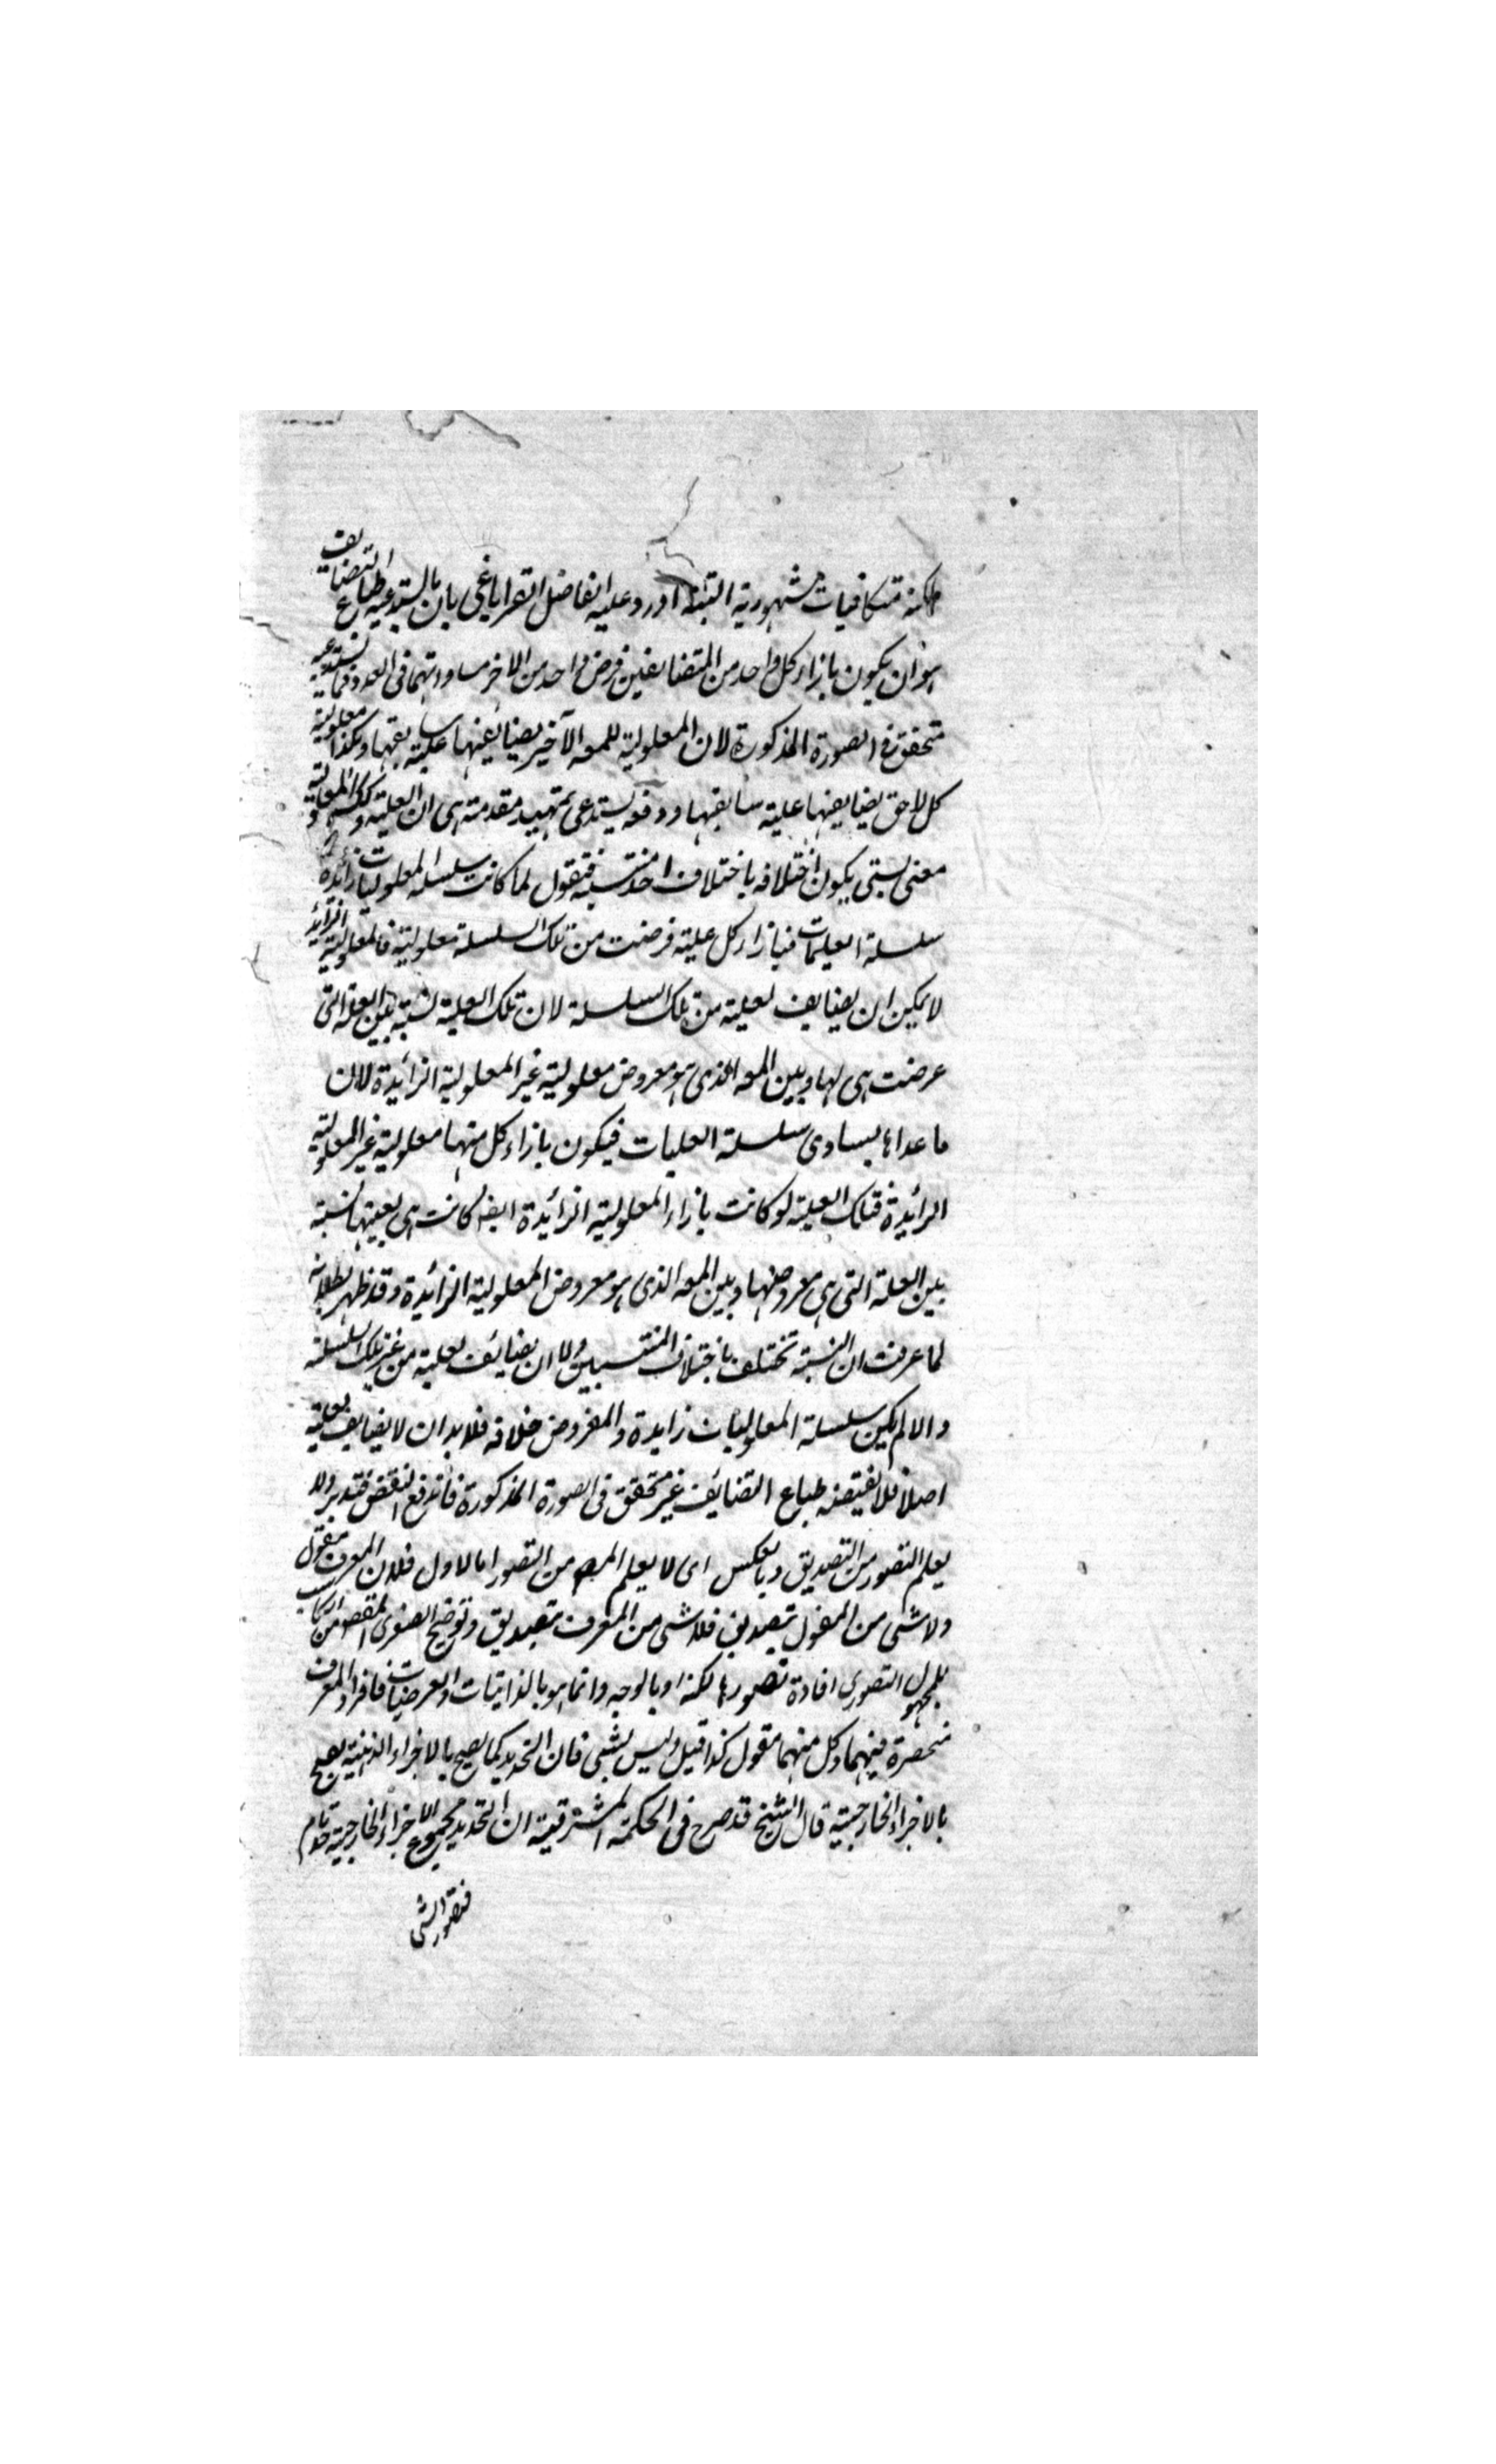 لكنه متكافيات مشهورية البتة اورد عليه الفاضل القراباغي بان ما يستدعيه طباع التضايف
هو ان يكون بازاء كل واحد من المتضايفين فرض واحد من الاخر مساويتهما في العدد فما يستدعيه
متحقق في الصورة المذكورة لان المعلولية للمعه الآخير يضايفها علية سابقها وهكذا معلولية
كل لاحق يضايفها علية سابقها ودفعه يستدعي تمهيد مقدمة هي ان العلية وكذا المعلولية
معنى نسبتي يكون اختلافه باختلاف احد منتسبيه فنقول لما كانت سلسلة المعلوليات زائدة
سلسلة العليات فبازاء كل علية فرضت من تلك السلسلة معلولية فالمعلولية الزائد
لا يمكن ان يضايف لعلية من تلك السلسلة لان تلك العلية نسبة بين العلة التي
عرضت هي لها وبين المعه الذي هو معروض معلولية غير المعلولية الزائدة لان
ما عداها يساوي سلسلة العليات فيكون بازاء كل منها معلولية غير المعلولية
الزائدة فتلك العلية لو كانت بازاء المعلولية الزائدة ايضا كانت هي بعينها نسبة
بين العلة التي هي معروضها وبين المعه الذي هو معروض المعلولية الزائدة وقد ظهر بطلانه
لما عرفت ان النسبة تختلف باختلاف المنتسبين ولا ان يضائف لعلية من غير تلك السلسلة
والا لم يكن سلسلة المعلوليات زايدة والمفروض خلافه فلا بد ان لا يضايف بعلية
اصلا فلا يقتضه طباع التضائف غير متحقق في الصورة المذكورة فاندفع النقض فتدبر ولا
يعلم التصور من التصديق وبالعكس اى لا يعلم المص من التصور اما لاول فلان المعرف مقول
ولا شى من المقول بتصديق فلا شى من المعرف بتصديق وتوضيح الصغرى المقصود من اكتساب
المجهول التصورى افادة تصور بالكنه او بالوجه وانما هو بالذاتيات والعرضيات فافراد المعرف
منحصرة فيهما وكل منهما مقول كذا قيل وليس بشى فان التحديد كما يصح بالاجزاء الذهنية يصح
بالاجزاء الخارجية قال الشيخ قد صرح في الحكمة المشرقية ان التحديد بمجموع الاجزاء الخارجية حد تام
فتصور الشى